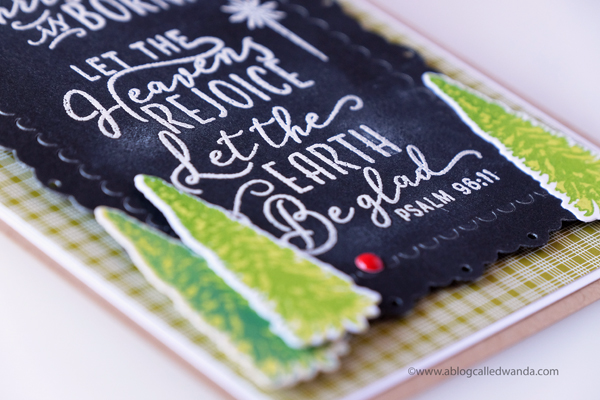 is BORN
LET THE
Heavens
REJOICE
Let the
EARTH
Be glad
PSALM 96:11
©www.ablogcalledwanda.com